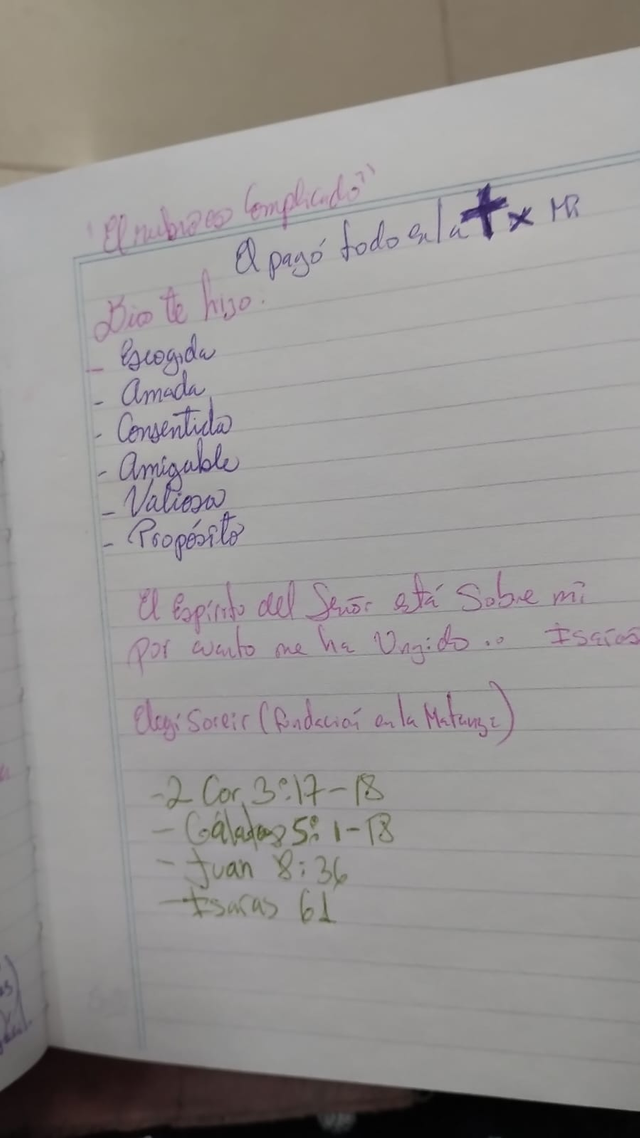 "El nubio es Complicado"
El pagó todo en la ✝ x Mi
Dios te hizo.
- Escogida
- Amada
- Consentida
- Amigable
- Valiosa
- Propósito
El Espíritu del Señor está Sobre mi
por cuanto me ha Ungido.. Isaías
Elegí Sonreir (Fundación en la Matanza)
- 2 Cor. 3:17-18
- Gálatas 5:1-18
- Juan 8:36
- Isaías 61